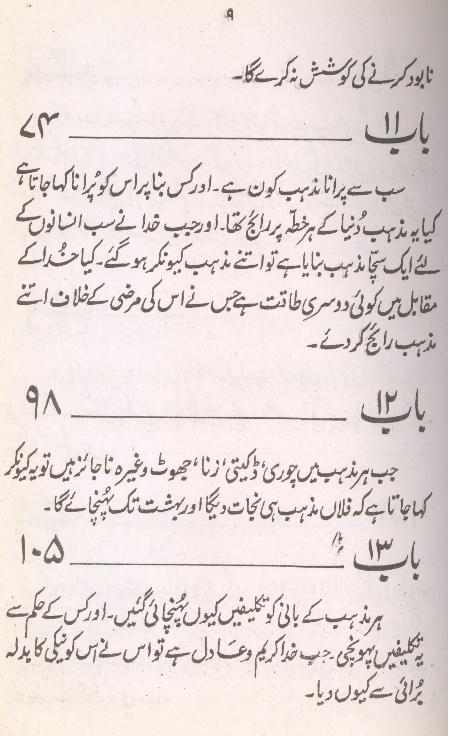 ۹
نابود کرنے کی کوشش نہ کرے گا۔
باب ۱۱ ــــــــــــــــــ ۷۴
سب سے پرانا مذہب کون ہے۔ اور کس بنا پر اس کو پُرانا کہا جاتا ہے
کیا یہ مذہب دُنیا کے ہر خطّہ پر رائج تھا۔ اور جب خدا نے سب انسانوں کے
لئے ایک سچّا مذہب بنایا ہے تو اتنے مذہب کیونکر ہو گئے۔ کیا خُدا کے
مقابل میں کوئی دوسری طاقت ہے جس نے اس کی مرضی کے خلاف اتنے
مذہب رائج کر دئے۔
باب ۱۲ ــــــــــــــــــ ۹۸
جب ہر مذہب میں چوری، ڈکیتی، زنا، جھوٹ وغیرہ ناجائز ہیں تو یہ کیونکر
کہا جاتا ہے کہ فلاں مذہب ہی نجات دیگا اور بہشت تک پہُنچائے گا۔
باب ۱۳ ــــــــــــــــــ ۱۰۵
ہر مذہب کے بانی کو تکلیفیں کیوں پہُنچائی گئیں۔ اور کس کے حکم سے
یہ تکلیفیں پہونچی۔ جب خدا کریم و عادل ہے تو اس نے اس کو نیکی کا بدلہ
بُرائی سے کیوں دیا۔